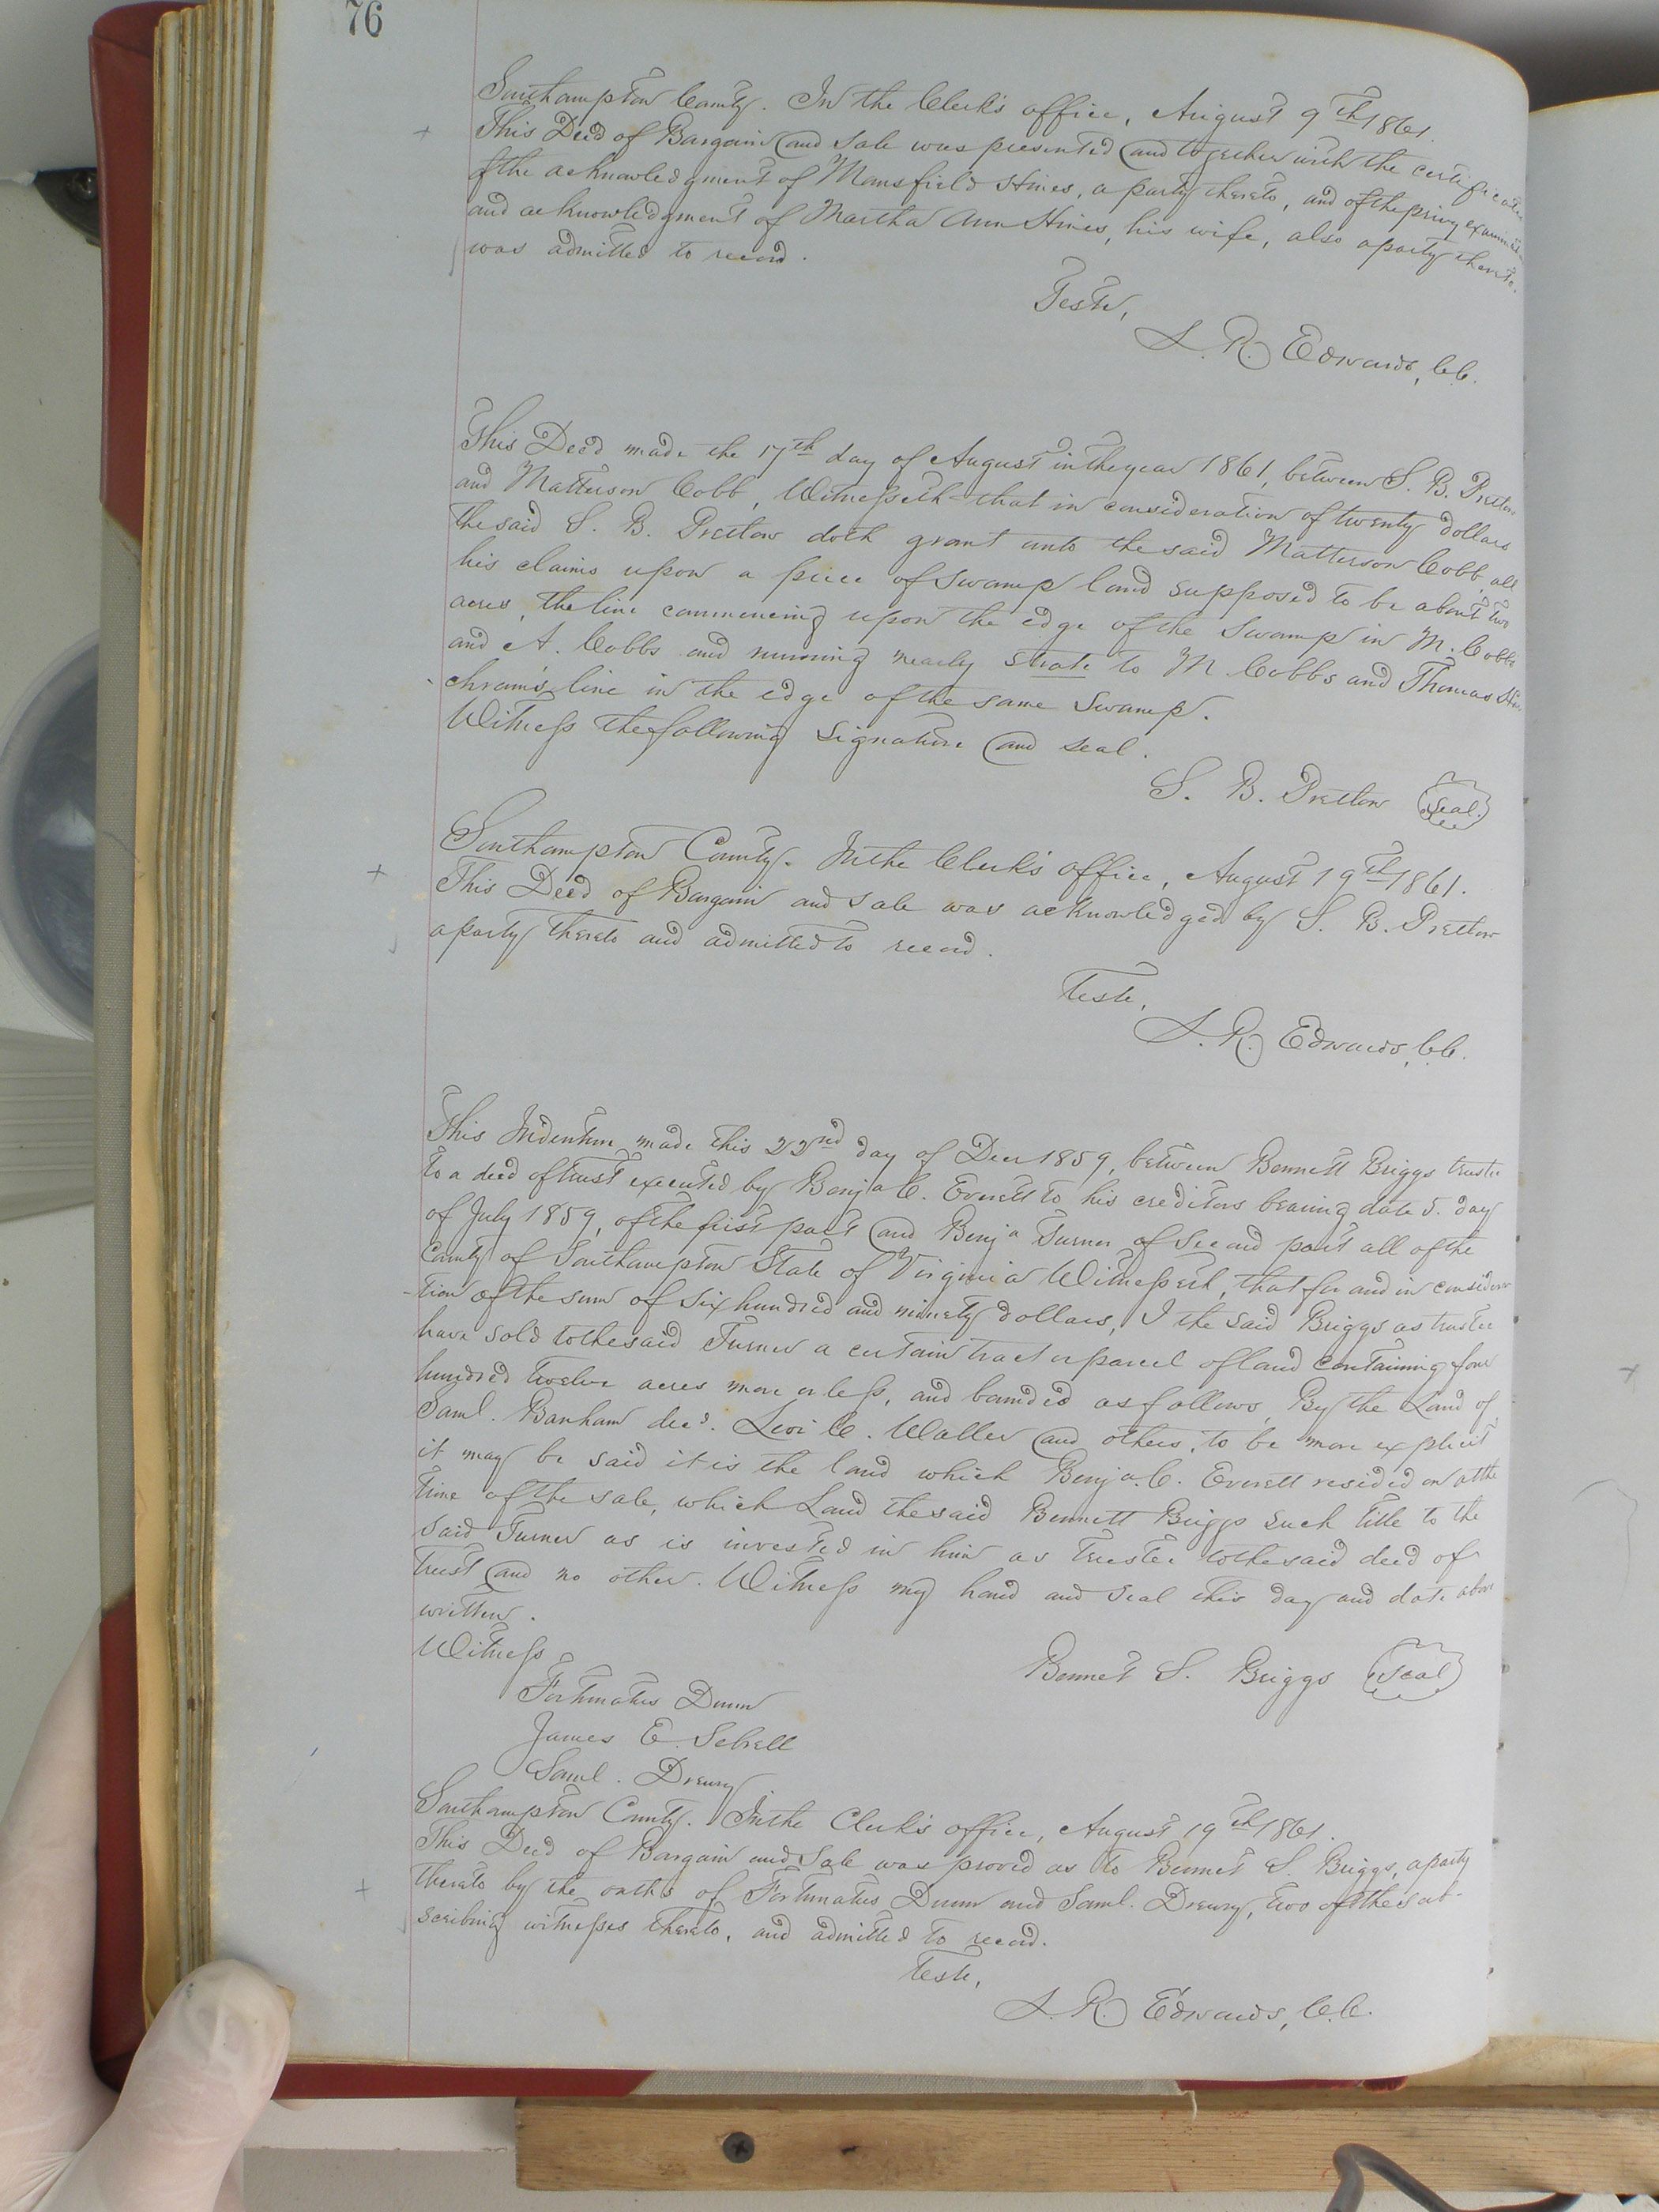 76
Southampton County. In the Clerk's office, August 9th 1861.
This Deed of Bargain and Sale was presented and together with the certificates
of the acknowledgment of Mansfield Hines, a party thereto, and of the privy examination
and acknowledgment of Martha Ann Hines, his wife, also a party thereto.
was admitted to record.
Teste,
L. R. Edwards, C.C.
This Deed made the 17th day of August in the year 1861, between S. B. Pretlow
and Matterson Cobb, Witnesseth that in consideration of twenty dollars
the said S. B. Pretlow doth grant unto the said Matterson Cobb all
his claims upon a piece of Swamp land supposed to be about two
acres, the line commencing upon the edge of the Swamp in M. Cobbs
and A. Cobbs and running nearly strate to M Cobbs and Thomas
chram's line in the edge of the same Swamp.
Witness the following signature and seal.
S. B. Pretlow Seal.
Southampton County. In the Clerk's office, August 19th 1861.
This Deed of Bargain and Sale was acknowledged by S. B. Pretlow
a party thereto and admitted to record.
Teste,
L. R. Edwards, C.C.
This Indenture made this 22nd day of Decr 1859, between Bennett Briggs trustee
to a deed of trust executed by Benja C. Everett to his creditors bearing date 5. day
of July 1859, of the first part and Benja Turner of Second part all of the
County of Southampton State of Virginia Witnesseth, that for and in considera
-tion of the sum of six hundred and ninety dollars, I the said Briggs as trustee
have sold to the said Turner a certain tract or parcel of land containing four
hundred twelve acres more or less, and bounded as follows, By the Land of
Saml. Barham decd. Levi C. Waller and others, to be more explicit
it may be said it is the land which Benja. C. Everett resided on at the
time of the sale, which Land the said Bennett Briggs such title to the
said Turner as is invested in him as Trustee to the said deed of
trust and no other. Witness my hand and seal this day and date above
written.
Witness
Bennet S. Briggs Seal
Fortunatus Dunn
James E. Sebrell
Saml. Drewry
Southampton County. In the Clerk's office, August 19th 1861.
This Deed of Bargain and Sale was proved as to Bennet S. Briggs, a party
thereto by the oaths of Fortunatus Dunn and Saml. Drewry, two of the sub-
scribing witnesses thereto, and admitted to record.
Teste,
L. R. Edwards, C.C.